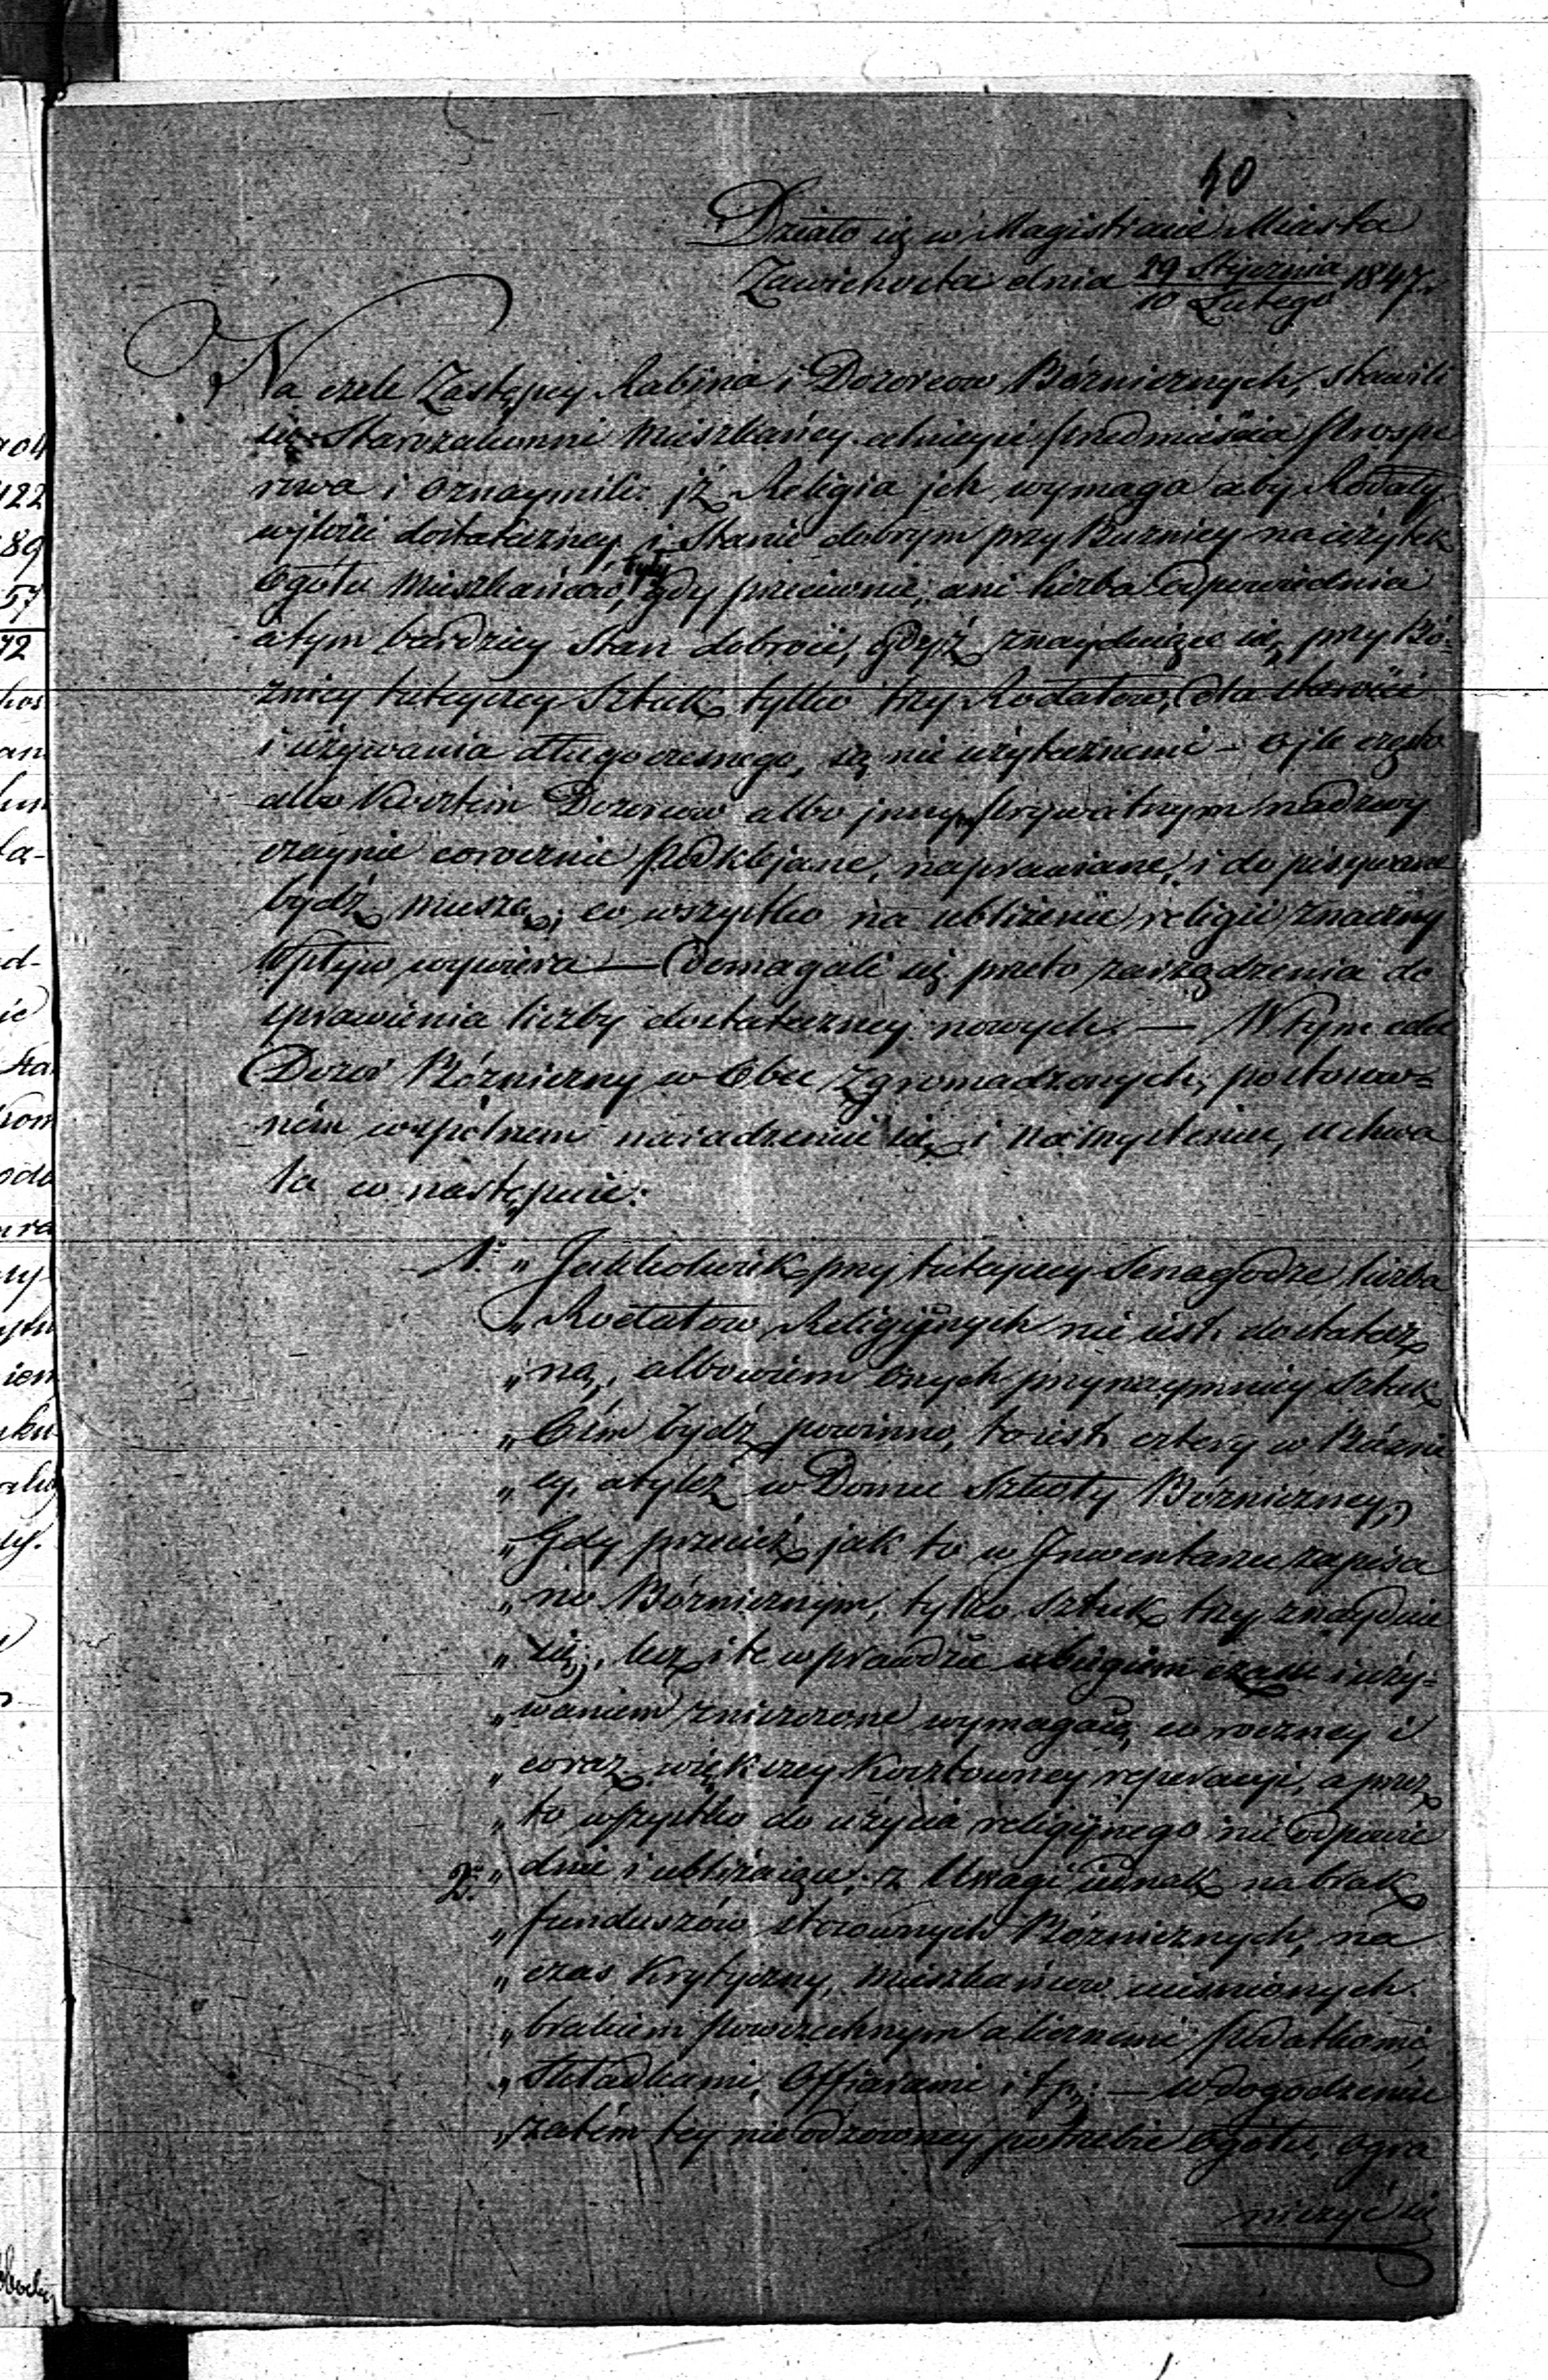 50
Działo się w Magistracie Miasta
Zawichosta dnia 29 Stycznia / 10 Lutego 1847.
Na czele Zastępcy Rabina i Dozorców Bóźnicznych, stawili
się Starozakonni Mieszkańcy celnieysi przedmieścia Prospe
rowa i oznaymili: jż Religia jch wymaga aby Rodały
w jlości dostateczney i Stanie dobrym przy Buznicy na użytek
Ogółu Mieszkańców, były gdy przeciwnie, ani liczba odpowiednia
a tym bardziey Stan dobroci, gdyż znayduiące się przy Bó-
znicy tuteyszey Sztuk tylko trzy Rodałów, dla starości
i używania długoczesnego, są nie użytecznemi – o jle często
albo Kosztem Dozorców albo jnnym prywatnym nadzwy
czaynie corocznie podklejane, naprawiane, i dopisywane
bydź muszą, co wszystko na ubliżenie religii znaczny
wpływ wywiera — Domagali się przeto zarządzenia do
sprawienia liczby dostateczney nowych. — W tym celu
Dozór Bóżniczny w Obec Zgromadzonych, po stosow-
ném wspólnem naradzeniu się i namyśleniu, uchwa
la co następuie:
1. „ Jakkolwiek przy tuteyszey Senagodze, liczba
„ Rodałów Religijnych nie iest dostatecz
„ ną, albowiem onych przynaymniey Sztuk
„ Ośm bydź powinno, to iest cztery w Bóżni
„ cy, a tyleż w Domu Szkoły Bóżniczney,
„ Gdy przecież jak to w Jnwentarzu zapisa
„ no Bóżnicznym, tylko sztuk trzy znayduie
„ się, lecz i te wprawdzie ubiegiem czasu i uży-
„ waniem zniszczone wymagaią, coroczney i
„ coraz większey kosztowney reperacyi, a przez
„ to wszystko do użycia religijnego nie odpowie
2. „ dnie i ubliżaiące. z Uwagi iednak na brak
„ funduszów stosownych Bóżnicznych, na
„ czas Krytyczny, Mieszkańców uciśnionych
„ brakiem powszechnym a licznemi podatkami,
„ Składkami, Offiarami i t.p: — w dogodzeniu
„ zatém tey nieodzowney potrzebie ogółu, ogra
niczyć się